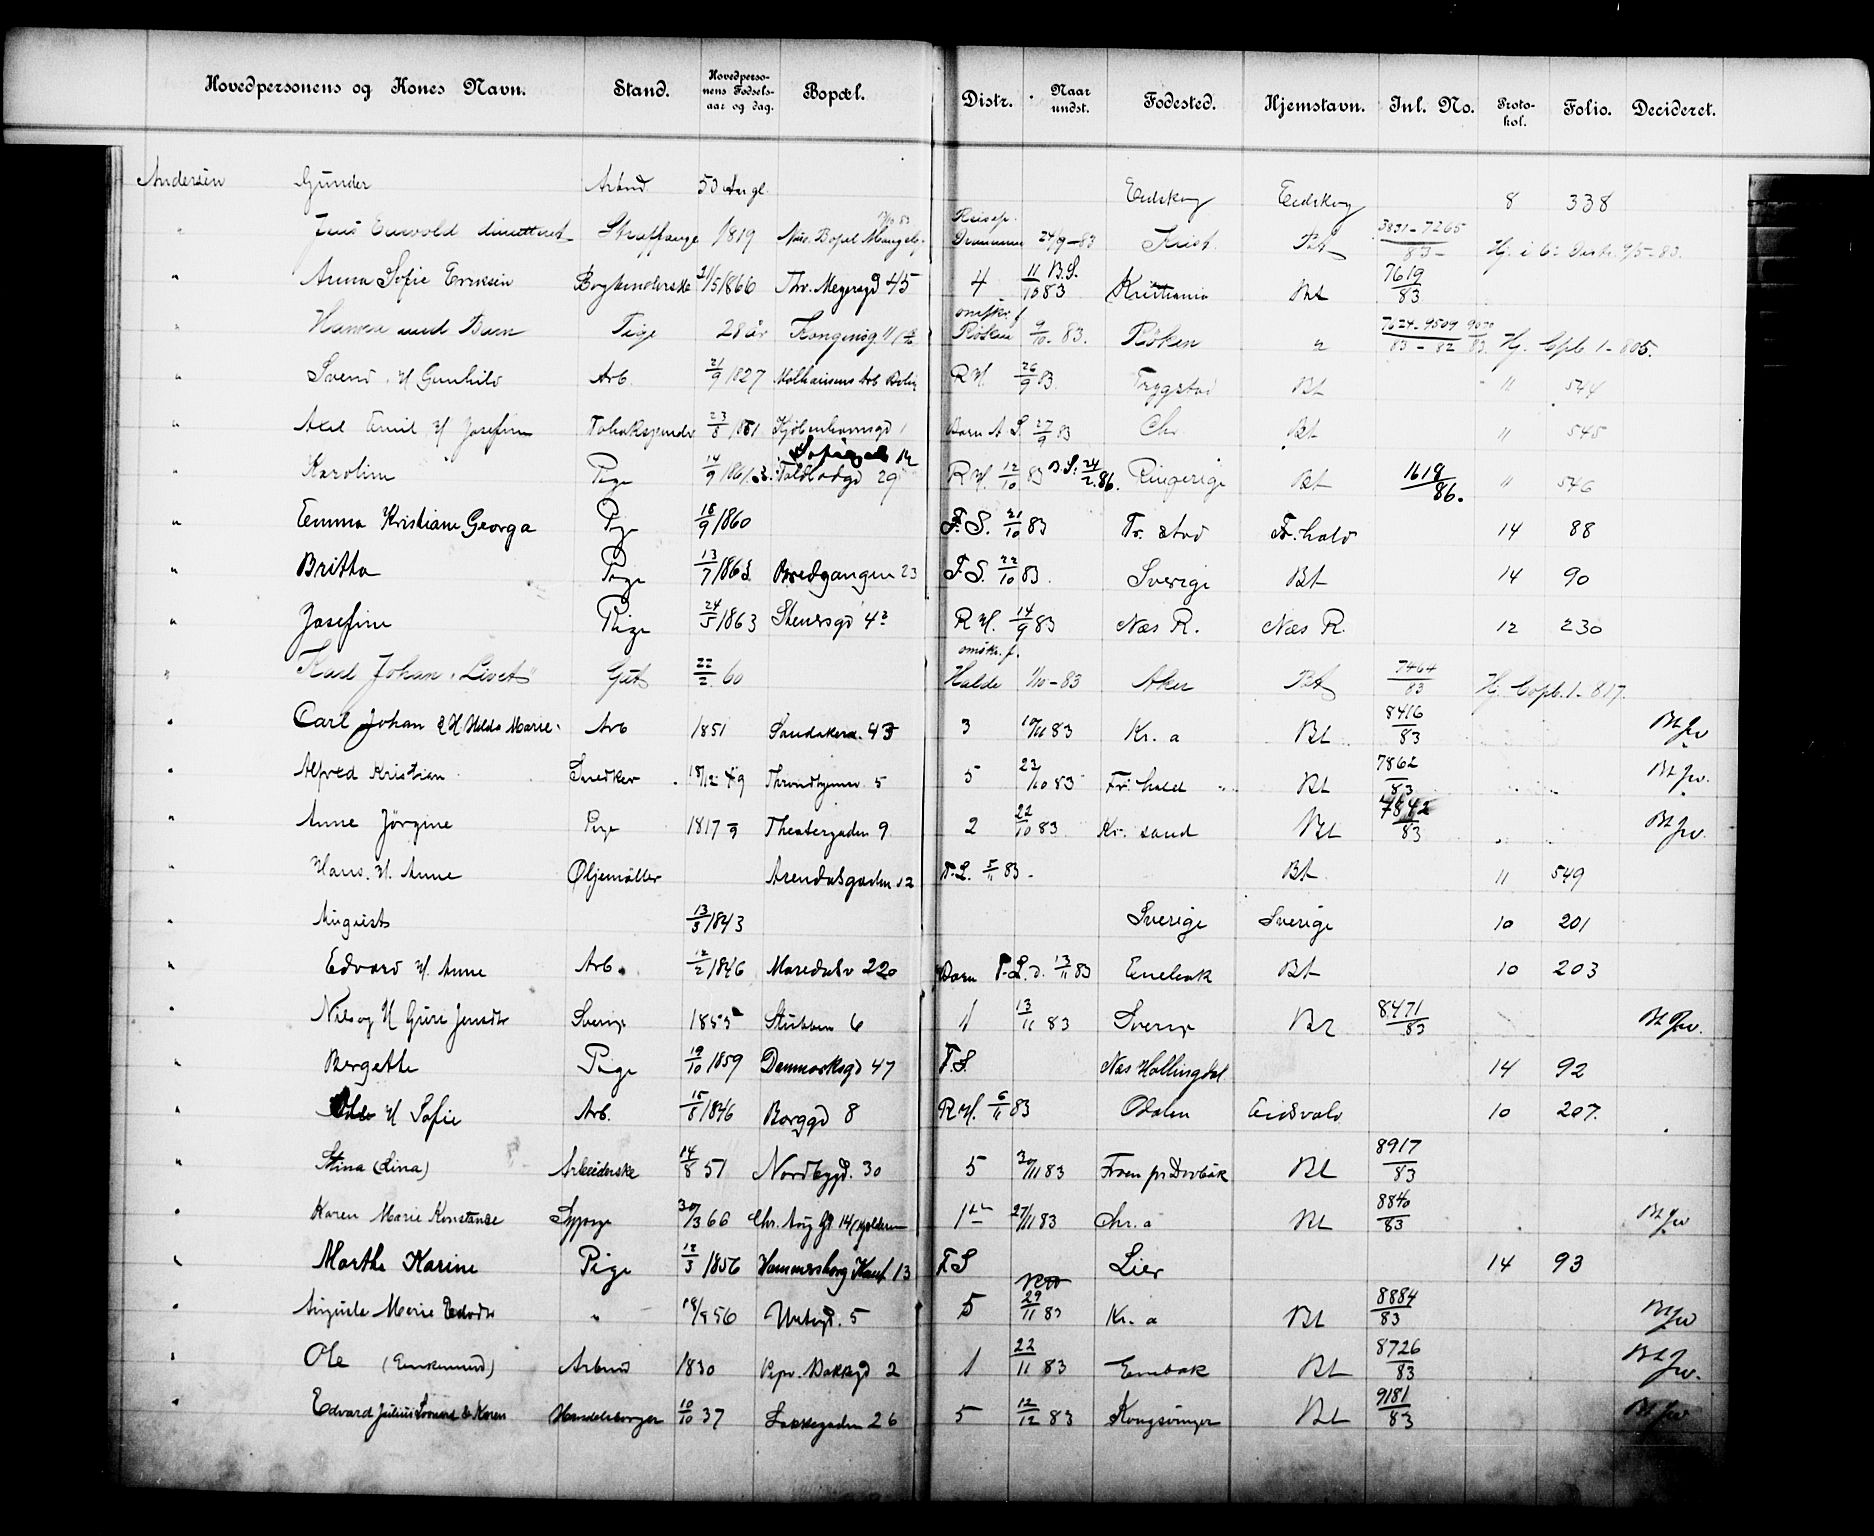 Hovedpersonens og Kones Navn. Stand. Hovedpersonens Fødselsaar og dag. Bopæl. Distr. Naar undst. Fødested. Hjemstavn. Inl. No. Protokol. Folio. Decideret.
Andersen Gunder Arbmd 53 Aar gl. Eidskog Eidskog 8 338
" Jens dimitteret Straffange 1819 Bopæl 24/9-83 Bt 3831-7265/83 Hj. i 6te Distr. 9/5-83.
" Anna Sofie Eriksen Bogbinderske 21/5 1866 Thv. Meyersgd 45 4 11/10 83 B.S. Kristiania Bt 7619/83
" med Barn Pige 28 år Røken 9/10-83. Røken " 7624-9509/83-82 Hj. Cpb. 1-805.
" Svend H Gunhild Arb. 21/9 1827 R.H. 26/9 83. Trygstad Bt " 544
" Axel Emil H Josefine 23/8 1861 Kjøbenhavnsgd 1 Barn A S. 27/9 83 Chr. Bt " 545
" Karoline Pige 14/9 1861 Toldbodgd 29 R.H. 12/10 83 B.S. 24/2 86. Ringerige Bt 1618/86. " 546
" Emma Kristiane Georga Pige 18/9 1860 F.S. 21/10 83 Fr. stad Fr. hald 14 88
" Britta Pige 13/7 1863 Bredgangen 23 F.S. 22/10 83. Sverige Bt 14 90
" Josefine Pige 24/5 1863 Stenersgd 4 R.H. 14/9 83 Næs R. Næs R. 12 230
" Karl Johan "Livet" Gut 22/2 60 omskr. f. Halde 1/10-83 Aker Bt 7464/83 Hj. Copb. 1-817.
" Carl Johan & H Hilda Marie Arb 1851 Sandakerv. 43 3 10/11 83 Kr. a Bt 8416/83 Bt Jv
" Alfred Kristian Snedker 18/12 49 Throndhjemsv. 5 5 23/10 83 Fr. hald Bt 7862/83 Bt Jv.
" Anne Jörgine Pige 1817 Theatergaden 9 2 22/10 83 Kr. sand Bt 7842/83 Bt Jv.
" Hans. H. Anne Oljemøller Arendalsgaden 12 F.L. 5/11 83. Bt " 549
" August 13/3 1843 Sverige Sverige 10 201
" Edvard H. Anne Arb. 12/2 1846 Maridalsv 220 Barn 13/11 83 Enebak Bt 10 203
" Nils og H Guri Jensdtr Sverige 1855 Stubben 6 1 13/11 83 Sverige Bt 8471/83 Bt Jv.
" Bergette Pige 19/10 1859 Danmarksgd 47 F.S. Næs Hallingdal 14 92
" H Sofie Arb. 15/8 1846 Borggd 8 R.H. 6/11 83 Odalen Eidsvold 10 207.
" Stina (Lina) Arbeiderske 14/8 51 Nordbygd. 30 5 30/11 83 Froen pr Drøbak Bt 8917/83
" Karen Marie Konstanse Sypige 30/3 66 Chr. Aug Gd 14 1ste 27/11 83 Chr. a Bt 8840/83 Bt Jv
" Marthe Karine Pige 12/3 1856 Hammersborg 13 F.S Lier 14 93
" Auguste Marie " 56 5 29/11 83 Kr. a Bt 8884/83 Bt Jv
" Ole (Enkemand) Arbmd 1830 Bakkegd 2 1 22/11 83 Enebak Bt 8726/83 Bt Jv.
" Edvard Julius & Karen Handelsborger 10/10 37 26 5 12/12 83 Kongsvinger Bt 9181/83 Bt Jv